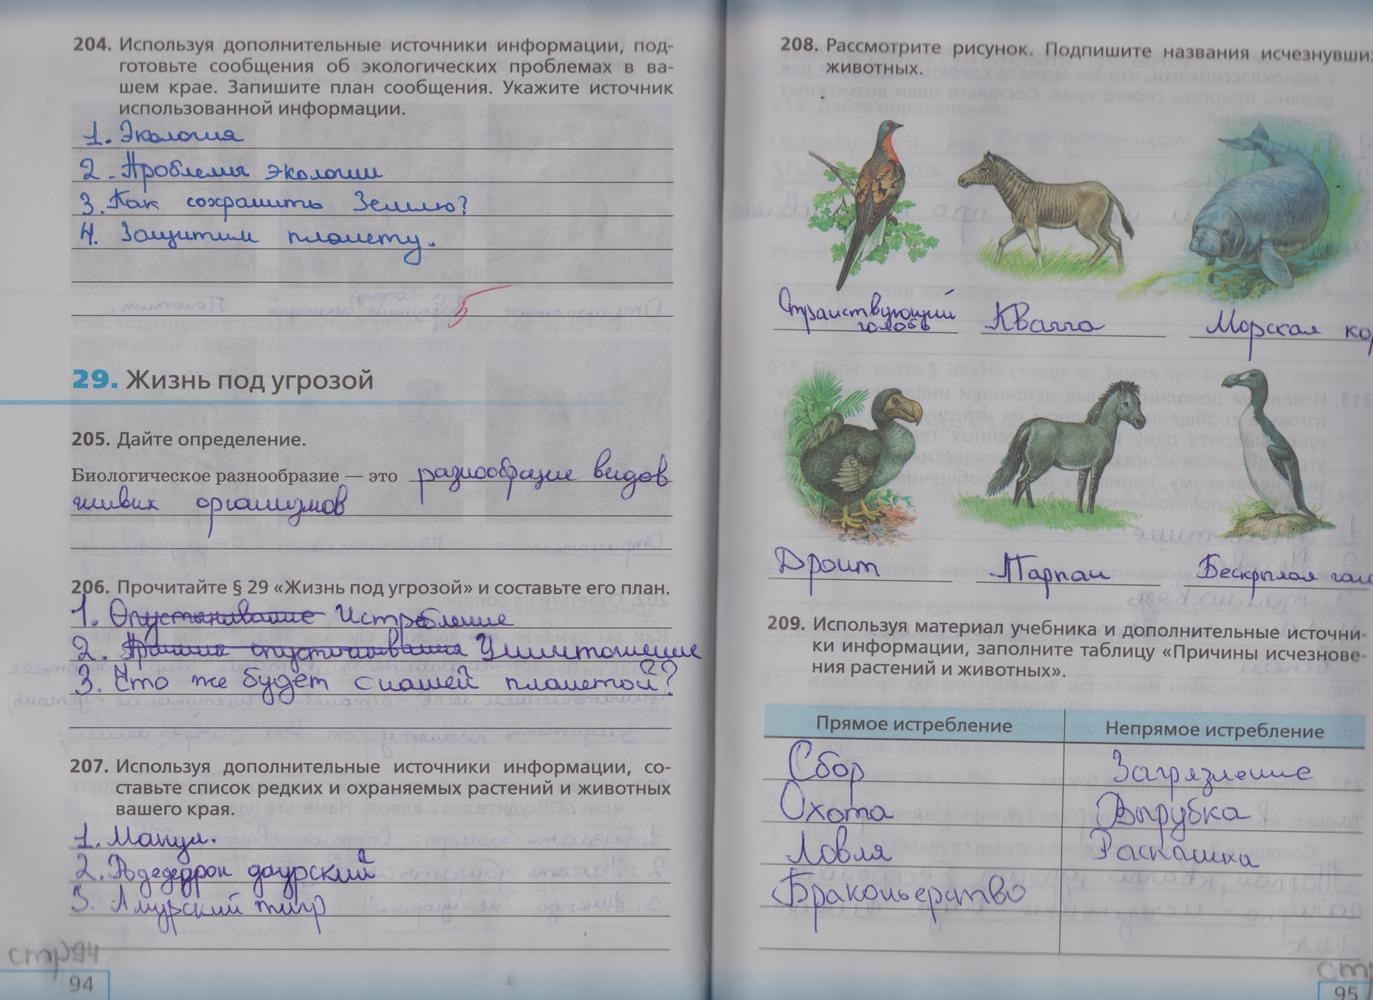 204. Используя дополнительные источники информации, под-
готовьте сообщения об экологических проблемах в ва-
шем крае. Запишите план сообщения. Укажите источник
использованной информации.
1. Экология
2. Проблемы экологии
3. Как сохранить Землю?
4. Защитим планету.
5
29. Жизнь под угрозой
205. Дайте определение.
Биологическое разнообразие — это разнообразие видов
живых организмов
206. Прочитайте § 29 «Жизнь под угрозой» и составьте его план.
1. Опустынивание Истребление
2. Уничтожение
3. Что же будет с нашей планетой?
207. Используя дополнительные источники информации, со-
ставьте список редких и охраняемых растений и животных
вашего края.
1. Манул.
2. даурский
3. Амурский тигр
стр94
94
208. Рассмотрите рисунок. Подпишите названия исчезнувши
животных.
Странствующий голубь
Квагга
Морская ко
Дронт
Тарпан
Бескрылая гага
209. Используя материал учебника и дополнительные источни-
ки информации, заполните таблицу «Причины исчезнове-
ния растений и животных».
Прямое истребление Непрямое истребление
Сбор Загрязнение
Охота Вырубка
Ловля Распашка
Браконьерство
стр
95